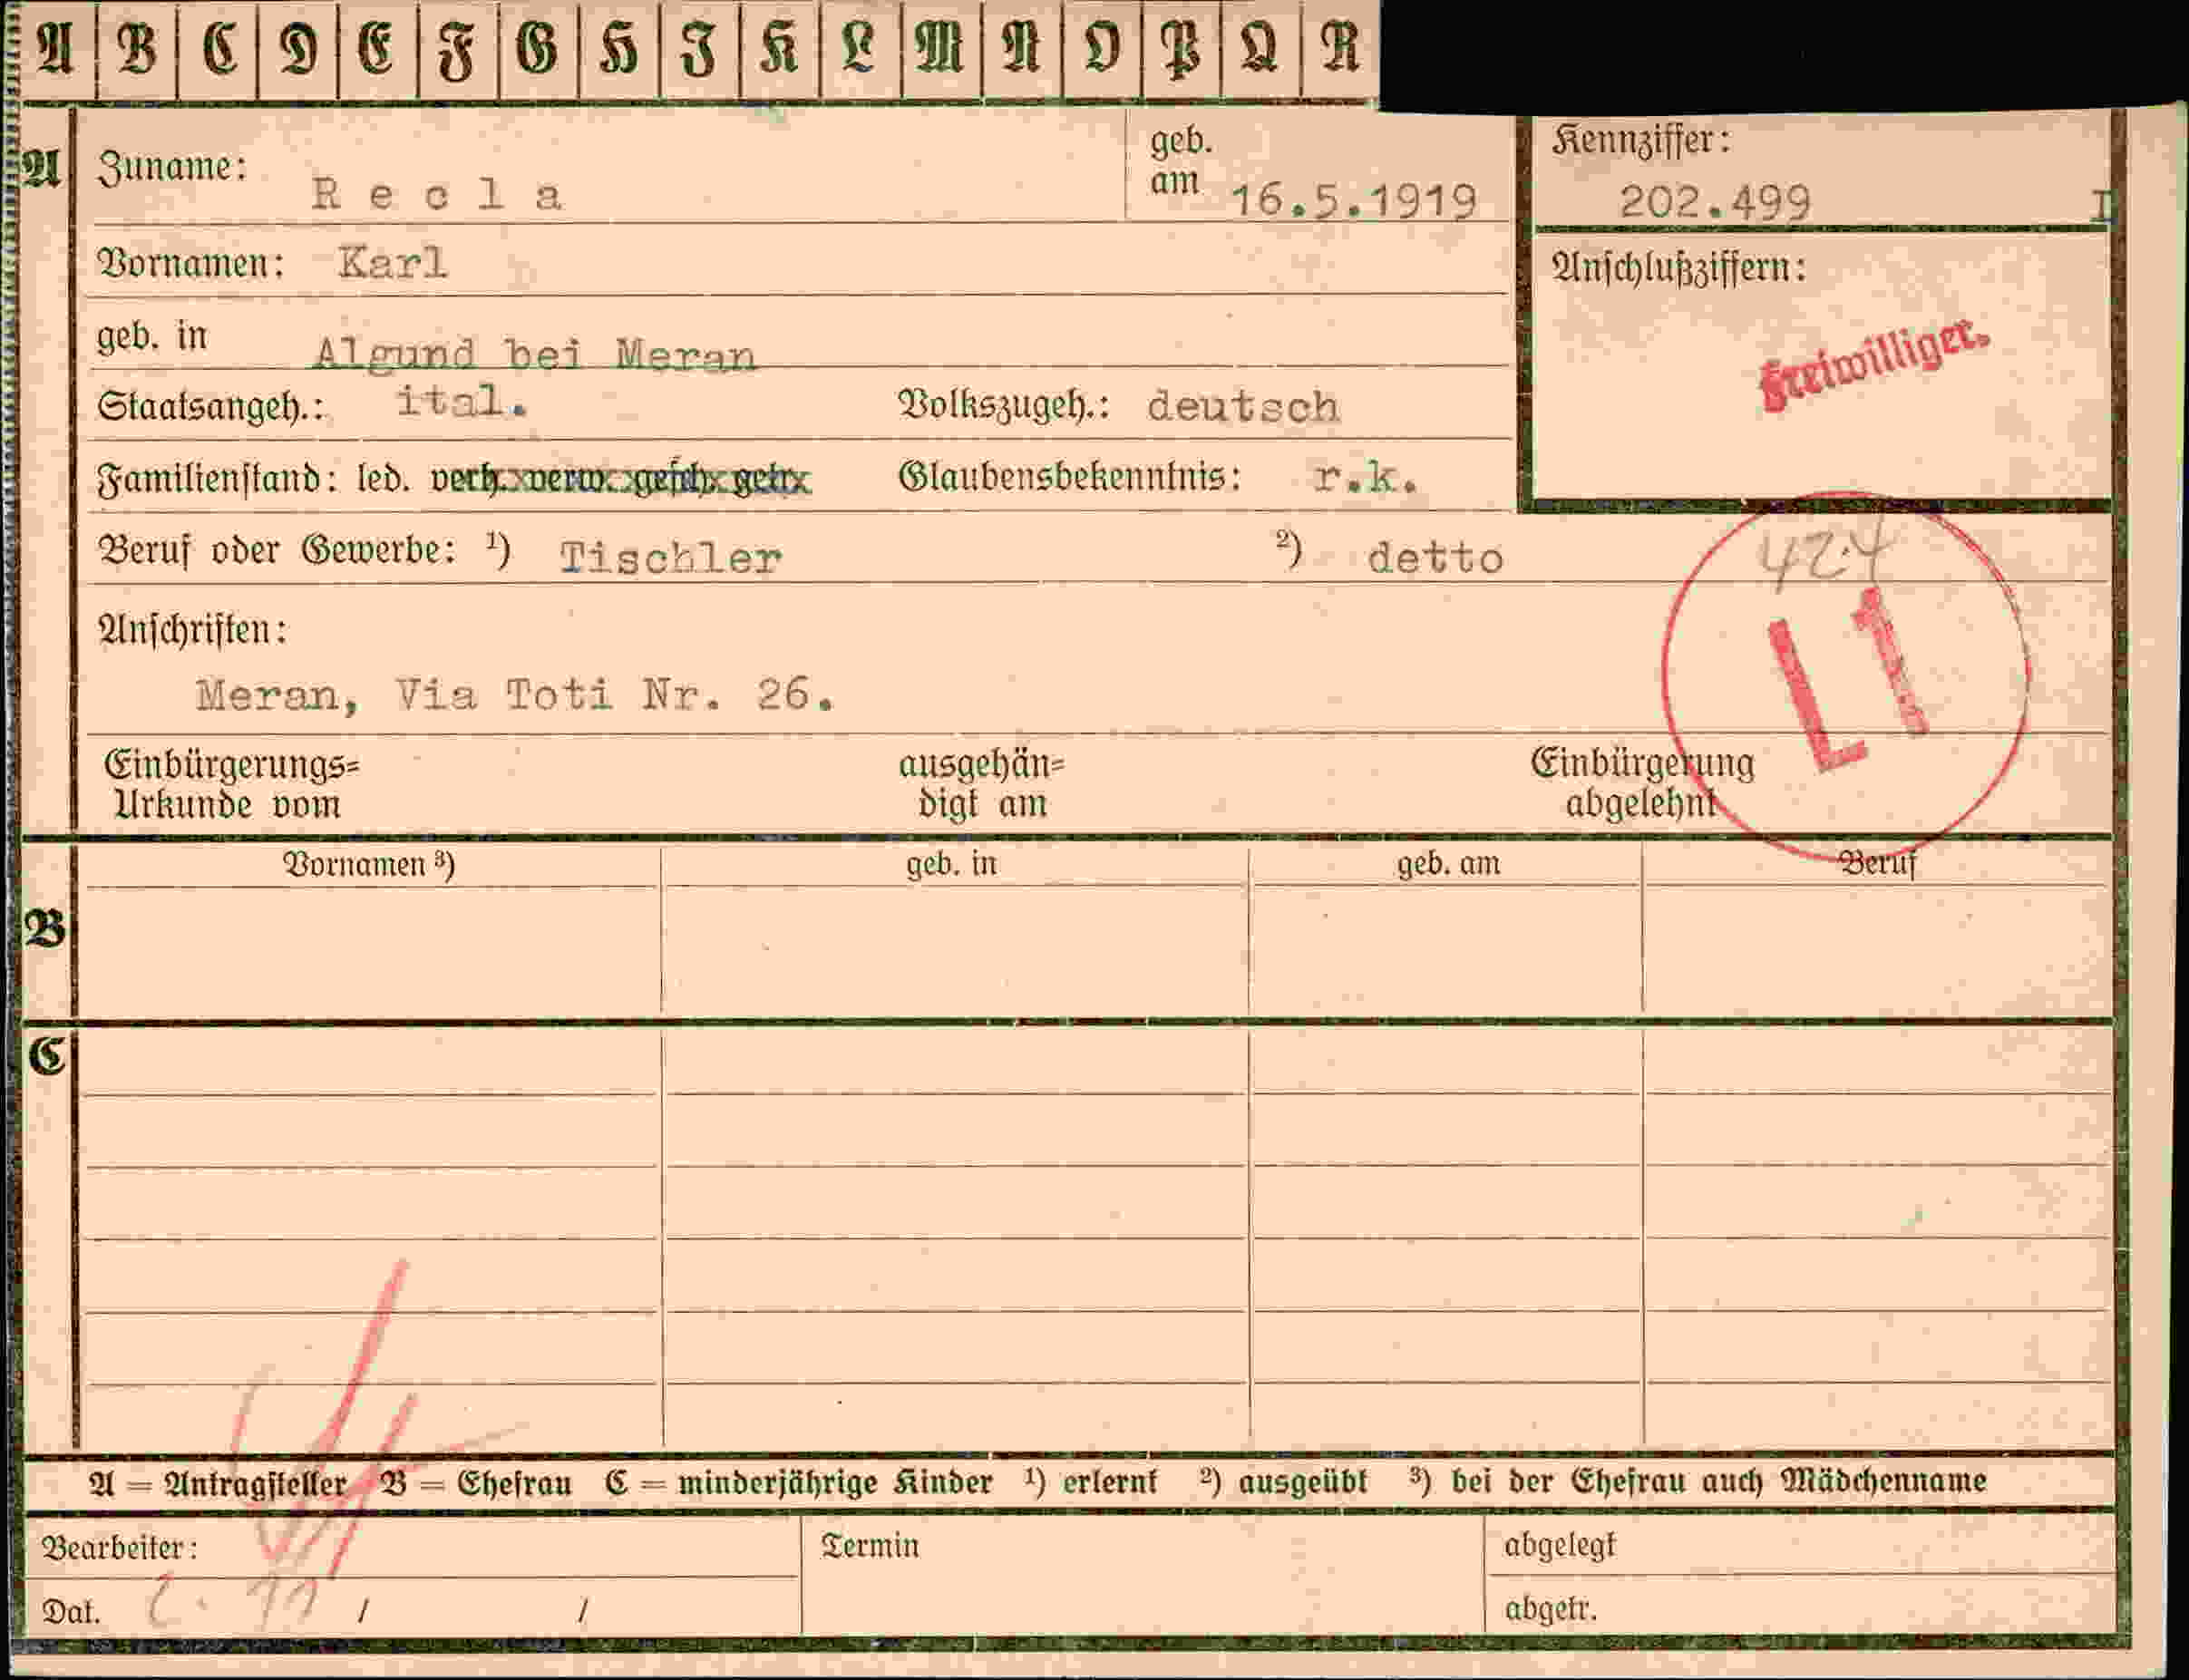 A B C D E F G H J K L M N O P Q R
A
Zuname: Recla
geb. am 16.5.1919
Kennziffer:
202.499 I
Vornamen: Karl
Anschlußziffern:
Freiwilliger.
geb. in Algund bei Meran
Staatsangeh.: ital. Volkszugeh.: deutsch
Familienstand: led. verh. verw. gesch. getr. Glaubensbekenntnis: r.k.
Beruf oder Gewerbe: ¹) Tischler ²) detto
424
L1
Anschriften:
Meran, Via Toti Nr. 26.
Einbürgerungs=
Urkunde vom
ausgehän=
digt am
Einbürgerung
abgelehnt
B
Vornamen ³) geb. in geb. am Beruf
C
A = Antragsteller B = Ehefrau C = minderjährige Kinder ¹) erlernt ²) ausgeübt ³) bei der Ehefrau auch Mädchenname
Bearbeiter: Termin abgelegt
Dat. / / abgetr.